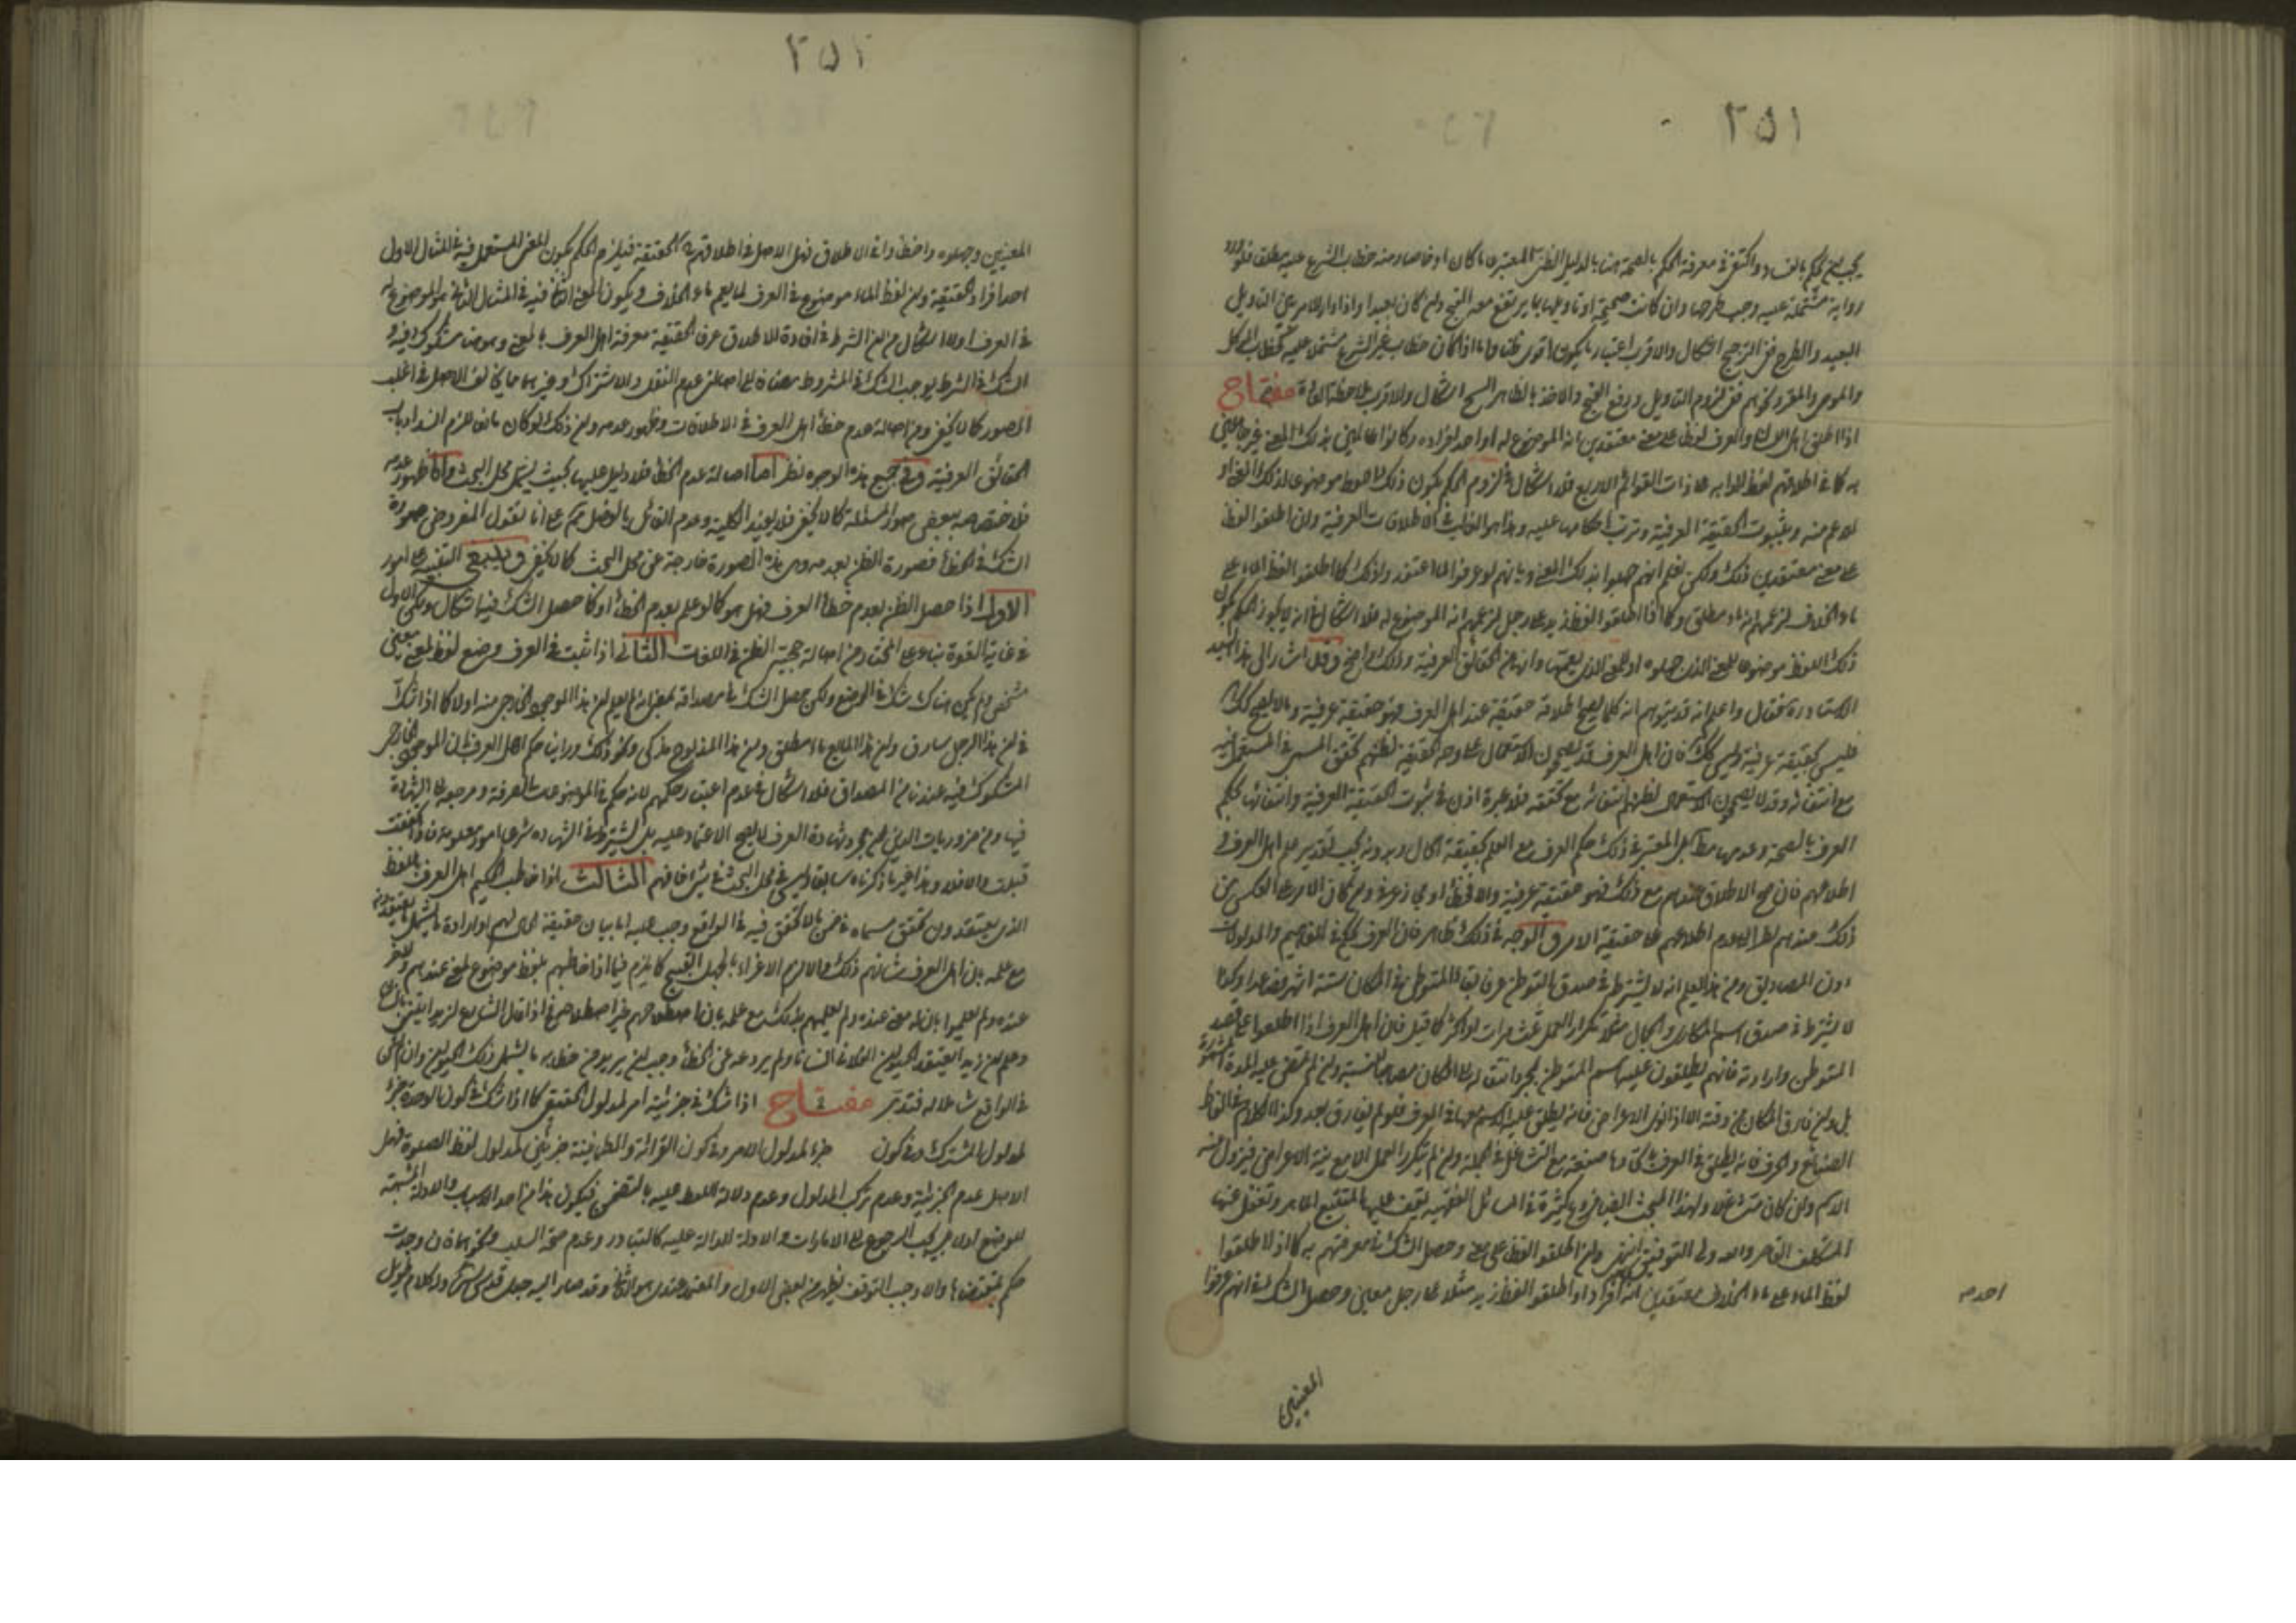 ٢٥١
يجب الحكم بالفساد واكتفى في معرفة الحكم بالصحة هنا بالدليل الظني المعتبر
رواية مشتملة عليه وجب طرحها وان كانت صحيحة او تاويلها بما يرتفع معه القبح وان كان بعيدا واذا دار الامر بين التاويل
البعيد والطرح ففي الترجيح اشكال والاقرب اعتبار ما يكون اقوى ظنا واما اذا كان خطاب غير الشرع مشتملا عليه
والموصى والمقر ونحوهم ففي لزوم التاويل ورفع القبح والاخذ بالظاهر اشكال والاقرب مفتاح
اذا اطلق اهل اللسان والعرف لفظا على معنى معتقدين انه الموضوع له او احد افراده وكانوا عالمين بذلك المعنى
به كما في اطلاقهم لفظ الدابه على ذات القوائم الاربع فلا اشكال في لزوم الحكم بكون ذلك اللفظ موضوعا لذلك المعنى او
للاعم منه وبثبوت الحقيقة العرفية وترتب احكامها عليه وهذا هو الغالب في الاطلاقات العرفية وان اطلقوا اللفظ
على معنى معتقدين ذلك ولكن نعلم انهم جهلوا بذلك المعنى وبانهم لو عرفوا لما اعتقدوا ذلك كما اطلقوا لفظ الماء على
ماء الخلاف لزعمهم انه ماء مطلق وكما اذا اطلقوا لفظ زيد على رجل لزعمهم انه الموضوع له فلا اشكال في انه لا يجوز الحكم بكون
ذلك اللفظ موضوعا للمعنى الذي جهلوه او للمعنى الذي يعمهما وانه من الحقائق العرفية وذلك واضح وقد اشار الى هذا السيد
الاستاد ره فقال واعلم انه قد يتوهم انه كلما يصح اطلاقه حقيقة عند اهل العرف فهو حقيقة عرفية وما لا يصح كك
فليس بحقيقة عرفية وليس كك فان اهل العرف قد يصححون الاستعمال على وجه الحقيقة لظنهم تحقق المسمى في المستعمل فيه
مع انتفائه وقد لا يصححون الاستعمال لظنهم انتفائه مع تحققه فلا عبرة اذن في ثبوت الحقيقة العرفية وانتفائها بحكم
العرف بالصحة وعدمها مط بل المعتبر في ذلك حكم العرف مع العلم بحقيقة الحال وبدونه يجب تقدير علم اهل العرف و
اطلاعهم فان صح الاطلاق عندهم مع ذلك فهو حقيقة عرفية والا فخطأ او مجاز عرفي وان كان الامر على العكس من
ذلك عندهم نظرا الى عدم اطلاعهم على حقيقة الامر والوجه في ذلك ظاهر فان العرف محكم في المفاهيم والمدلولات
دون المصاديق ومن هذا يعلم انه لا يشترط في صدق التوطن عرفا بقاء المتوطن في المكان ستة اشهر فصاعدا وكذا
لا يشترط في صدق اسم المكاري والجمال مثلا تكرار العمل ثلث مرات او اكثر كما قيل فان اهل العرف اذا اطلعوا على قصد
المتوطن وارادته فانهم يطلقون عليه اسم المتوطن بمجرد انتقاله الى المكان مصاحبا للنية وان لم تمض عليه المدة
بل وان فارق المكان من وقته الا اذا نوى الاعراض فانه يطلق عليه الاسم معها في العرف فلو لم يفارق بعد وكذا الكلام في الفاظ
الصنائع والحرف فانه يطلق في العرف مع التشاغل في الجملة وان لم يتكرر العمل الا مع نية الاعراض فيزول منه
الاسم وان كان متشاغلا ولهذا المبحث ايضا فروع كثيرة في المسائل الفقهية يقف عليها المتتبع الماهر وتغفل عنها
المتكلف القاصر والله ولي التوفيق انتهى وان اطلقوا اللفظ على معنى وحصل الشك في معرفتهم به كما اذا اطلقوا
لفظ الماء على ماء الخلاف معتقدين انه افراده او اطلقوا لفظ زيد مثلا على رجل معين وحصل الشك في انهم عرفوا
احد مـ
المعنيين
٢٥٢
المعنيين وجهلوه واخطأوا في الاطلاق فهل الاصل في اطلاقهم الحقيقة فيلزم الحكم بكون المعنى المستعمل فيه في المثال الاول
احد افراد الحقيقة وان لفظ الماء موضوع في العرف لما يعم ماء الخلاف ويكون المعنى المستعمل فيه في المثال الثاني هو الموضوع له
في العرف اولا اشكال من ان الشرط في افادة الاطلاق عرفا الحقيقة معرفة اهل العرف بالمعنى وهو هنا مشكوك فيه و
الشك في الشرط يوجب الشك في المشروط مضافا الى اصالة عدم النقل والاشتراك وغيرهما مما يخالف الاصل في اغلب
الصور كما لا يخفى ومن اصالة عدم خطأ اهل العرف في الاطلاقات وظهور عدمه وان ذلك لو كان مانعا للزم انسداد باب
الحقائق العرفية وفي جميع هذه الوجوه نظر اما اصالة عدم الخطأ فلا دليل عليها بحيث يشمل محل البحث واما ظهور عدمه
فلاختصاصه ببعض صور المسئلة كما لا يخفى فلا يفيد الكلية وعدم القائل بالفصل مم على انا نقول المفروض صورة
الشك في الخطأ فصورة الظن بعدمه وهي هذه الصورة خارجة عن محل البحث كما لا يخفى وينبغي التنبيه على امور
الاول اذا حصل الظن بعدم خطأ العرف فهل هو كما لو علم بعدم الخطأ او كما حصل الشك فيه اشكال ولكن الاول
في غاية القوة بناء على المختار من اصالة حجية الظن في اللغات الثاني اذا ثبت في العرف وضع لفظ لمعنى معين
مشخص ولم يكن هناك شك في الوضع ولكن حصل الشك في مصداقه بمعنى انه لم يعلم ان هذا الموجود الخارجي منه اولا كما اذا شك
في ان هذا الرجل سارق وان هذا المايع ماء مطلق وان هذا المذبوح مذكى ونحو ذلك وراينا حكم اهل العرف بان الموجود الخارجي
المشكوك فيه عندنا من المصداق فلا اشكال في عدم اعتبار حكمهم لانه حكم في الموضوعات الصرفة ومرجعه الى الشهادة
فيها ومن ضروريات الدين ان مجرد شهادة العرف لا يصح الاعتماد عليه بل يشترط في الشهاده شرعا امور معلومة فاذا تحققت
قبلت والا فلا وهذا غير ما ذكرناه سابقا وليس في محل البحث في شئ فافهم الثالث اذا خاطب الحكيم اهل العرف باللفظ
الذي يعتقدون تحقق مسماه في ضمن ما لا تحقق فيه في الواقع وجب عليه اما بيان حقيقة الحال لهم او ارادة ما يشمل ما يعتقدونه
مع علمه بان اهل العرف شانهم ذلك والا لزم الاغراء بالجهل القبيح كما يلزم فيما اذا خاطبهم بلفظ موضوع لمعنى عندهم
عنده ولم يعلموا بان له معنى عنده ولم يعلمهم بذلك مع علمه بان اصطلاحهم غير اصطلاحه
وعلم ان زيدا يعتقد الحيوان الفلاني انسانا ولم يردعه عن الخطأ وجب ان يريد من خطابه ما يشمل ذلك الحيوان وان لم يكن
في الواقع شاملا له فتدبر مفتاح اذا شك في جزئية امر لمدلول لفظ كما اذا شك في كون الوحدة جزء
لمدلول المشترك وفي كون جزء لمدلول الامر وفي كون القرائة والطمانينة جزئين لمدلول لفظ الصلوة فهل
الاصل عدم الجزئية وعدم تركب المدلول وعدم دلالة اللفظ عليه بالتضمن فيكون هذا من احد الاسباب والادلة المثبتة
للوضع اولا بل يجب الرجوع الى الامارات والادلة الدالة عليه كالتبادر وعدم صحة السلب ونحوهما فان وجدت
حكم بمقتضاها والا وجب التوقف يظهر من بعض الاول والمعتمد عندي هو الثاني وقد صار اليه جدي قدس سره وله كلام طويل